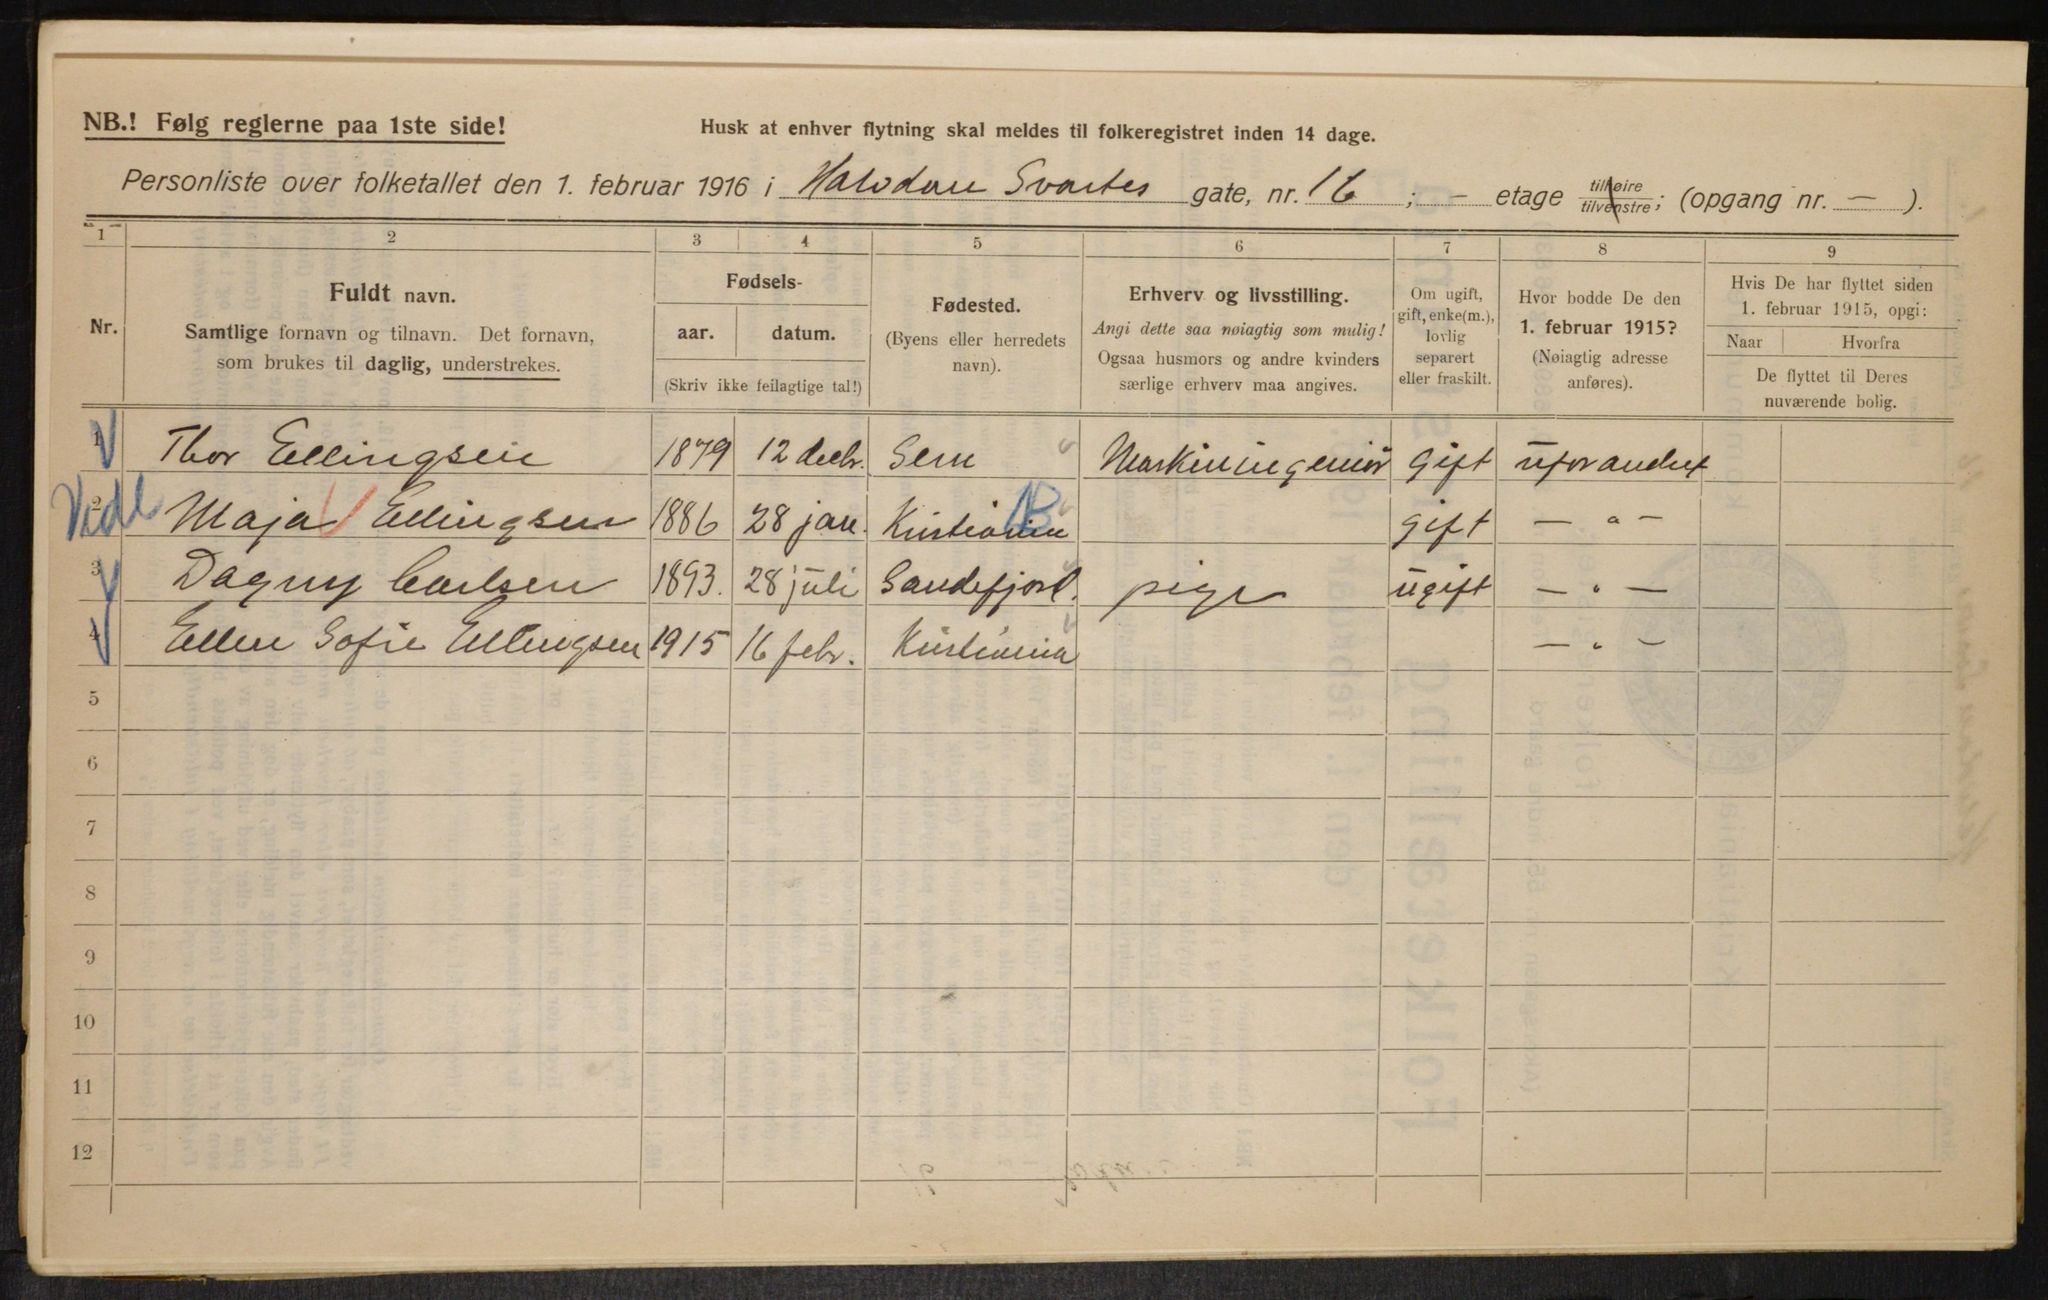 NB.! Følg reglerne paa 1ste side!
Husk at enhver flytning skal meldes til folkeregistret inden 14 dage.
Personliste over folketallet den 1. februar 1916 i Halvdan Svartes gate, nr. 16 ; - etage tilhøire tilvenstre; (opgang nr. - ).
1 2 3 4 5 6 7 8 9
Nr.
Fuldt navn.
Samtlige fornavn og tilnavn. Det fornavn,
som brukes til daglig, understrekes.
Fødsels-
aar. datum.
(Skriv ikke feilagtige tal!)
Fødested.
(Byens eller herredets
navn).
Erhverv og livsstilling.
Angi dette saa nøiagtig som mulig!
Ogsaa husmors og andre kvinders
særlige erhverv maa angives.
Om ugift,
gift, enke(m.),
lovlig
separert
eller fraskilt.
Hvor bodde De den
1. februar 1915?
(Nøiagtig adresse
anføres).
Hvis De har flyttet siden
1. februar 1915, opgi:
Naar Hvorfra
De flyttet til Deres
nuværende bolig.
1 Thor Ellingsen 1879 12 decbr. Sem Maskiningeniør gift uforandret
2 Maja Ellingsen 1886 28 jan. Kristiania gift — " —
3 Dagny Carlsen 1893. 28 juli Sandefjord. pige ugift — " —
4 Ellen Sofie Ellingsen 1915 16 febr. Kristiania — " —
5
6
7
8
9
10
11
12